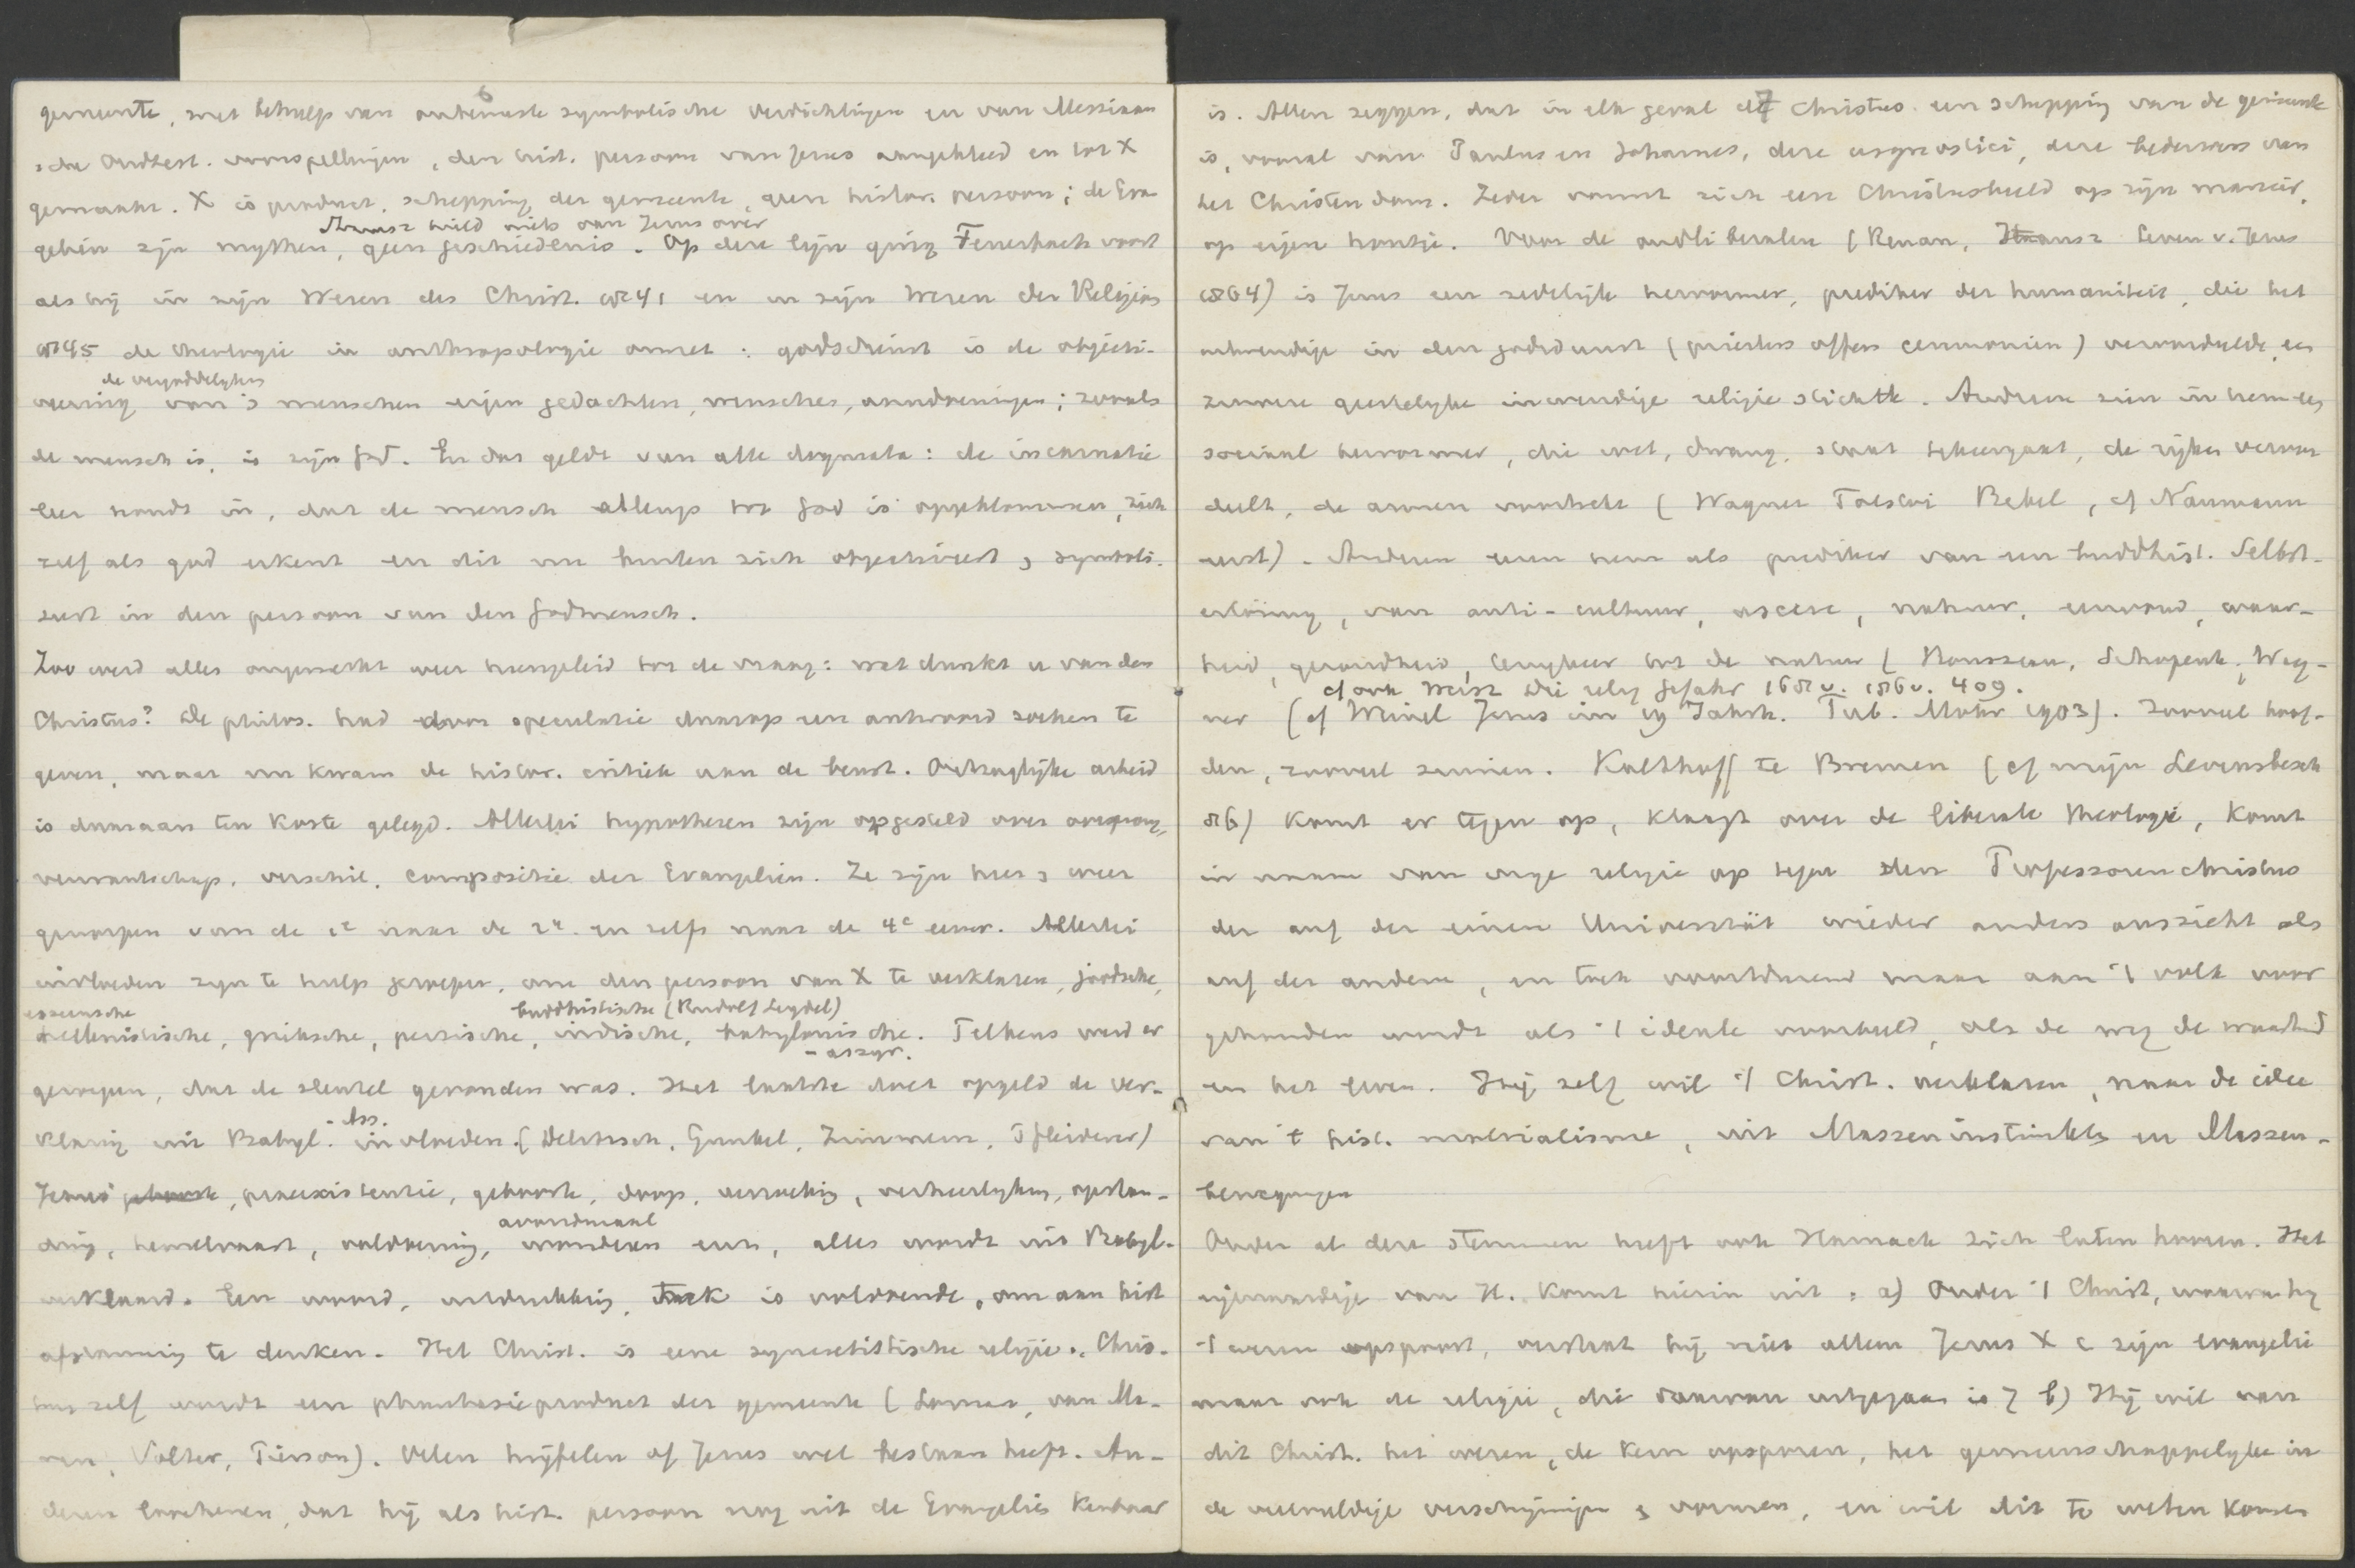 6
gemeente, met behulp van onbewuste symbolische verdichtingen en van Messiaan
sche Oudtest. voorspellingen, den hist. persoon van Jezus aangekleed en tot X
gemaakt. X is product, schepping der gemeente, geen histor. persoon; de Evan
Strausz hield niets van Jezus over
geliën zijn mythen, geen geschiedenis. Op deze lijn ging Feuerbach voort
als hij in zijn Wesen des Christ. 1841 en in zijn Wesen der Religion
1845 de theologie in anthropologie omzet: godsdienst is de objecti-
de vergoddelyking
veering van 's menschen eigen gedachten, wenschen, aandoeningen; zooals
de mensch is, is zijn God. En dat geldt van alle dogmata: de incarnatie
leer houdt in, dat de mensch allengs tot God is opgeklommen, zich
zelf als god erkent en dit nu buiten zich objectiveert, symboli-
seert in den persoon van den Godmensch.
Zoo werd alles ongemerkt weer heengeleid tot de vraag: wat dunkt u van den
Christus? De philos. had door speculatie daarop een antwoord zoeken te
geven, maar nu kwam de histor. critiek aan de beurt. Ontzaglijke arbeid
is daaraan ten koste gelegd. Allerlei hypothesen zijn opgesteld over oorsprong,
verwantschap, verschil, compositie der Evangeliën. Ze zijn heen & weer
geworpen van de 1e naar de 2e en zelfs naar de 4e eeuw. Allerlei
invloeden zijn te hulp geroepen, om den persoon van X te verklaren, joodsche,
esseensche buddhistische (Rudolf Seydel)
hellenistische, grieksche, persische, indische, babylonische. Telkens werd er
- assyr.
geroepen, dat de sleutel gevonden was. Het laatste doet opgeld de ver-
- Ass.
klaring uit Babyl. invloeden. (Delitzsch, Gunkel, Zimmern, Pfleiderer)
Jezus' geboorte, praeexistentie, geboorte, doop, verzoeking, verheerlyking, opstan-
avondmaal
ding, hemelvaart, voldoening, wonderen enz, alles wordt uit Babyl.
verklaard. Een woord, uitdrukking, is voldoende, om aan hist
afstamming te denken. Het Christ. is eene syncretistische religie. Chris-
tus zelf wordt een phantasieproduct der gemeente (Loman, van Ma-
nen, Volter, Pierson). Velen twijfelen of Jezus wel bestaan heeft. An-
deren erkennen, dat hij als hist. persoon nog uit de Evangeliën kenbaar
7
is. Allen zeggen, dat in elk geval de Christus een schepping van de gemeente
is, vooral van Paulus en Johannes, deze usgnostici, deze bedervers van
het Christendom. Ieder vormt zich een Christusbeeld op zijn manier,
op eigen houtje. Voor de oudliberalen (Renan, Strausz Leven v. Jezus
1864) is Jezus een zedelijk hervormer, prediker der humaniteit, die het
uitwendige in den godsdienst (priesters offers ceremonien) veroordeelde, een
zuivere geestelyke inwendige religie stichtte. Anderen zien in hem een
sociaal hervormer, die wet, dwang, staat tegengaat, de rijken veroor
deelt, de armen voortrekt (Wagner Tolstoi Bebel, cf Naumann
eerst). Anderen eeren hem als prediker van een buddhist. Selbst-
erlösung, van anti-cultuur, ascese, natuur, eenvoud, waar-
heid, gezondheid, terugkeer tot de natuur (Rousseau, Schopenh. Wag-
cf ook Weisz Die relig Gefahr 168 v. 186 v. 409.
ner (cf Weinel Jesus im 19 Jahrh. Tub. Mohr 1903). Zooveel hoof-
den, zooveel zinnen. Kalthoff te Bremen (cf mijn Levensbesch
86) komt er tegen op, klaagt over de liberale theologie, komt
in naam van vrije religie op tegen den Professorenchristus
der auf der einen Universität wieder anders aussieht als
auf der andern, en toch voortdurend maar aan 't volk voor
gehouden wordt als 't ideale voorbeeld, als de weg de waarheid
en het leven. Hij zelf wil 't Christ. verklaren, naar de idee
van 't hist. materialisme, uit Masseninstinkte en Massen-
bewegungen
Onder al deze stemmen heeft ook Harnack zich laten hooren. Het
eigenaardige van H. komt hierin uit: a) Onder 't Christ, waarvan hij
't wezen opspoort, verstaat hij niet alleen Jezus X c zijn evangelie
maar ook de religie, die daarvan uitgegaan is; b) Hij wil van
dit Christ. het wezen, de kern opsporen, het gemeenschappelyke in
de veelvuldige verschijningen & vormen, en wil dit te weten komen